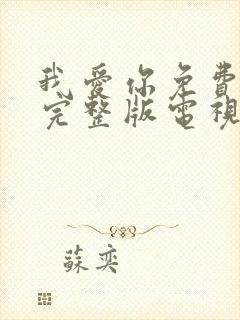 我愛你免費
完整版電視
蘇奕